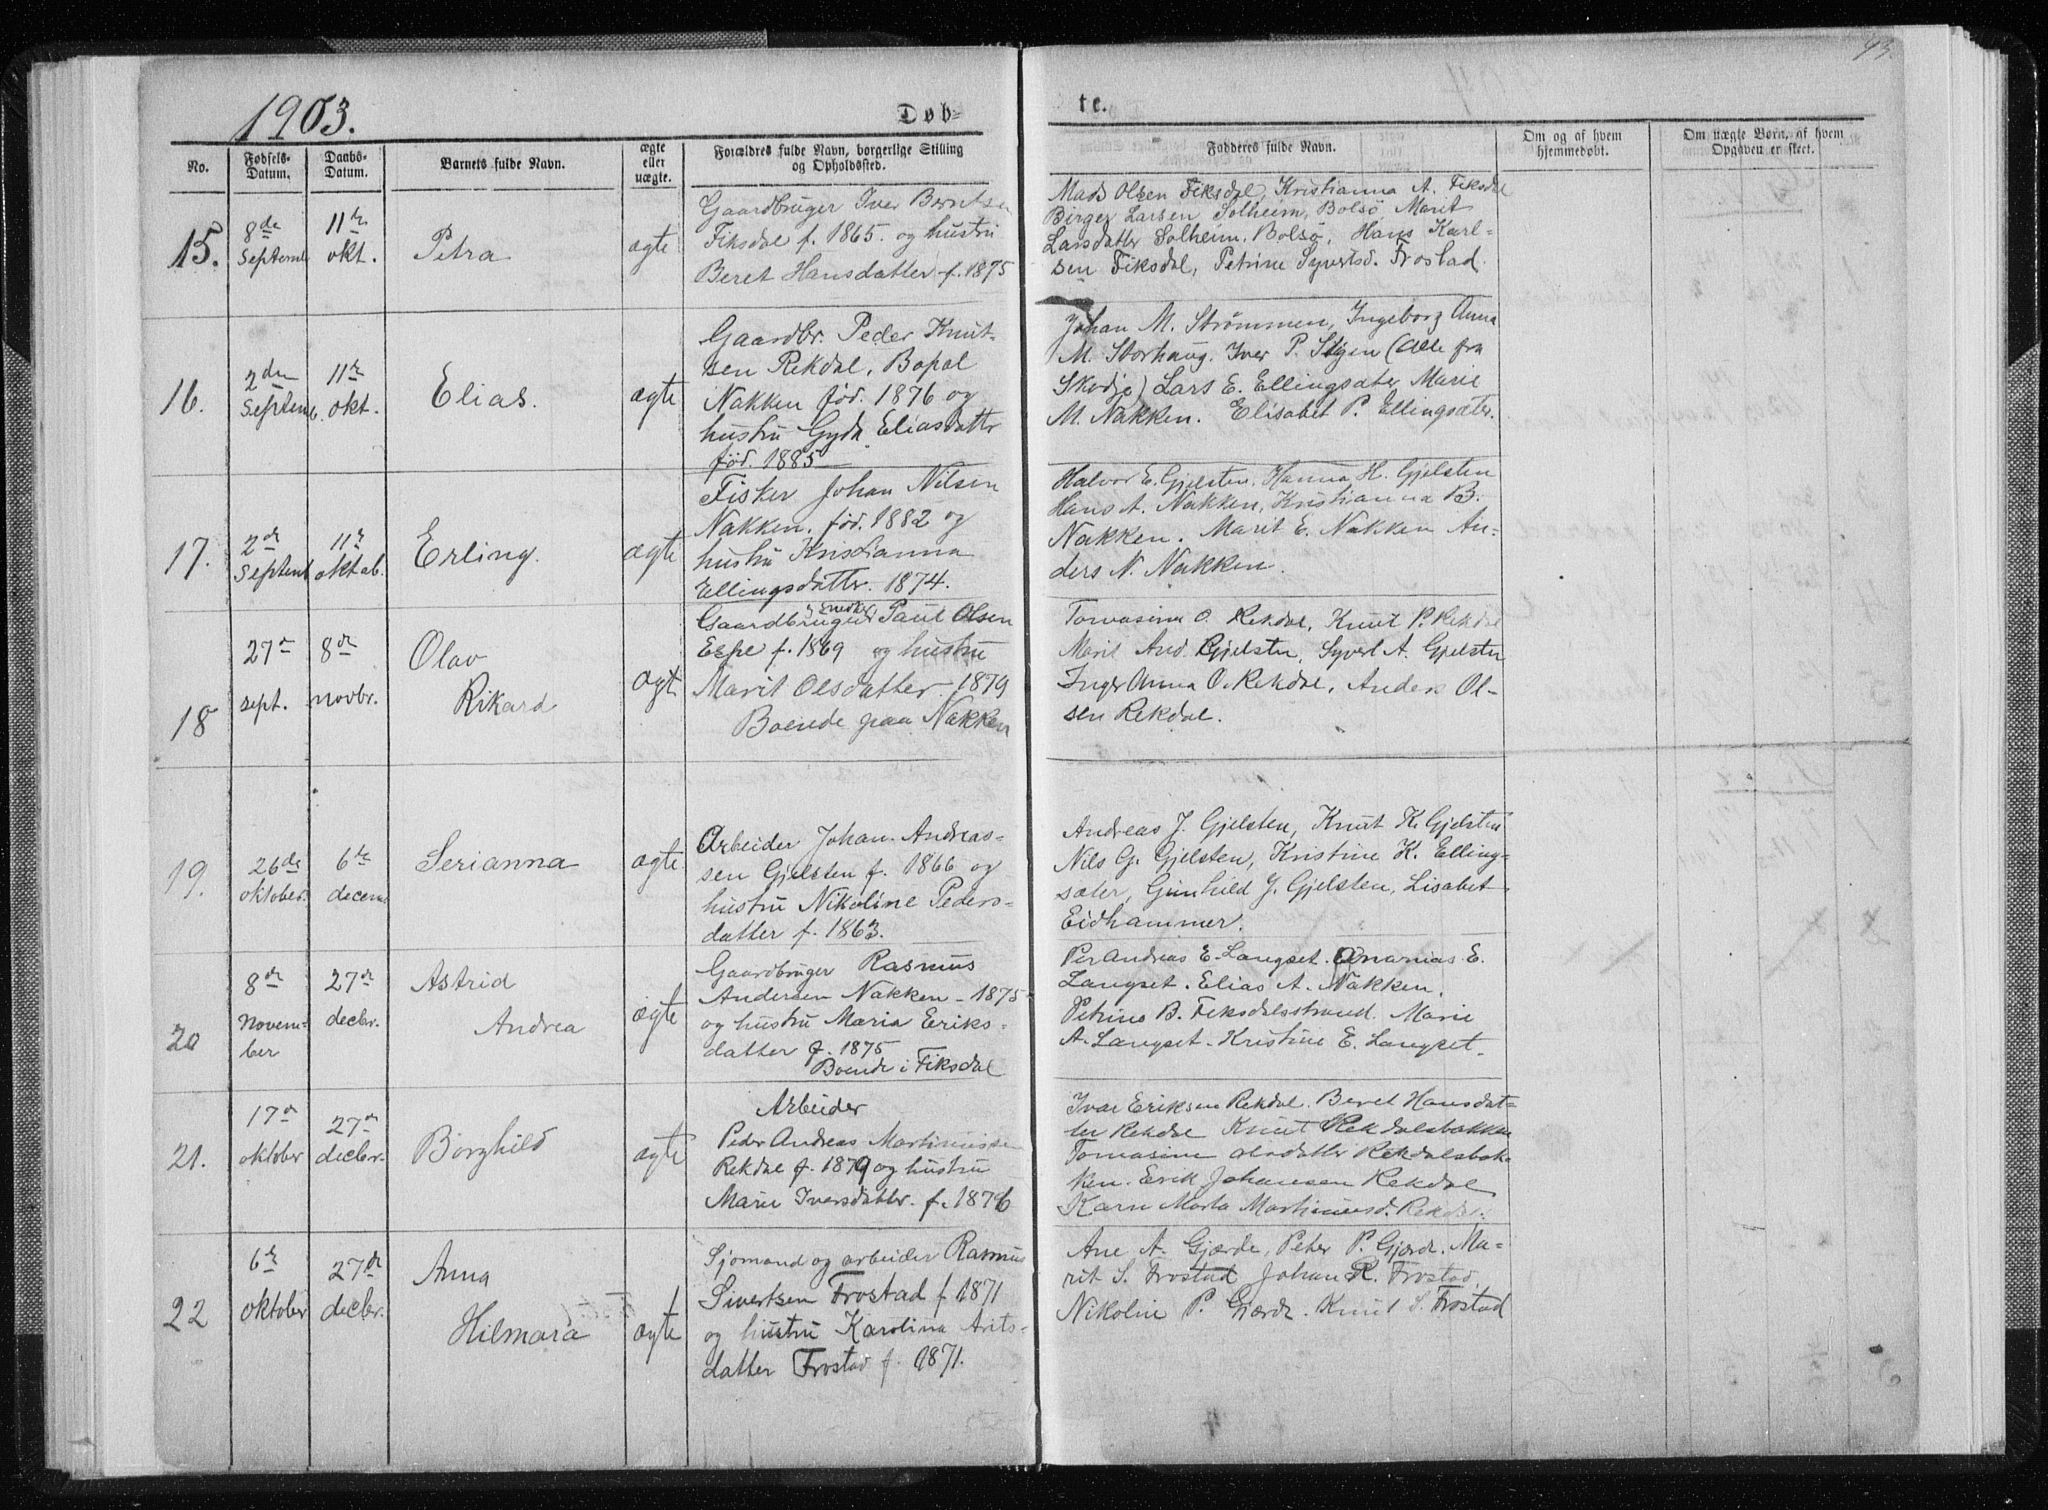 1903.
Døb-
te.
93.
No.
Fødsels-
Datum.
Daabs-
Datum.
Barnets fulde Navn.
ægte
eller
uægte.
Forældres fulde Navn, borgerlige Stilling
og Opholdssted.
Fadderes fulde Navn.
Om og af hvem
hjemmedøbt.
Om uægte Børn, af hvem
Opgaven er skeet.
15.
8de
Septemb
11te
okt.
Petra
ægte
Gaardbruger Iver Berntsen
Fiksdal f. 1865. og hustru
Beret Hansdatter f. 1875
Mads Olsen Fiksdal, Kristianna A. Fiksdal
Birger Larsen Solheim, Bolsø, Marit
Larsdatter Solheim. Bolsø, Hans Karl-
sen Fiksdal, Petrine Syvertsd. Frostad.
16.
2den
Septemb.
11te
okt.
Elias.
ægte
Gaardbr. Peder Knut-
sen Rekdal, Bopæl
Nakken fød. 1876 og
hustru Gyda Eliasdattr
fød. 1885
Johan M. Strømmen, Ingeborg Anna
M. Storhaug. Iver P. Stgen (alle fra
Skodje) Lars E. Ellingsæter Marie
M. Nakken. Elisabet P. Ellingsæter.
17.
2de
Septemb
11te
oktob.
Erling.
ægte
Fisker Johan Nilsen
Nakken. fød. 1882 og
hustru Kristianna
Ellingsdattr. 1874.
Halvor E. Gjelsten. Hanna H. Gjelsten
Hans A. Nakken, Kristianna B.
Nakken. Marit E. Nakken An-
ders N. Nakken.
18
27de
sept.
8de
novbr.
Olav
Rikard
ægte
Gaardbruger Snedker Paul Olsen
Espe f. 1869 og hustru
Marit Olsdatter. 1879
Boende paa Nakken
Tomasine O. Rekdal, Knut P. Rekdal
Marit And. Gjelsten, Syvert A. Gjelsten
Inger Anna O. Rekdal, Anders Ol-
sen Rekdal.
19.
26de
oktober.
6te
decemb
Serianna
ægte
Arbeider Johan Andreas-
sen Gjelsten f. 1866 og
hustru Nikoline Peders-
datter f. 1863.
Andreas J. Gjelsten, Knut K. Gjelsten
Nils G. Gjelsten, Kristine K. Elling-
sæter, Gunhild J. Gjelsten, Lisabet
Eidhammer.
20
8de
Novem-
ber
27de
decbr.
Astrid
Andrea
ægte
Gaardbruger Rasmus
Andersen Nakken - 1875
og hustru Maria Eriks-
datter f. 1875
Boende i Fiksdal
Per Andreas E. Langset. Ananias E.
Langset. Elias A. Nakken.
Petrine B. Fiksdalsstrand. Marie
A. Langset. Kristine E. Langset.
21.
17de
oktober
27de
decbr.
Borghild
ægte
Arbeider
Peder Andreas Martinussen
Rekdal f. 1879 og hustru
Marie Iversdattr. f. 1876
Ivar Eriksen Rekdal. Beret Hansdat-
ter Rekdal Knut Rekdalsbakken
Tomasine Olsdatter Rekdalsbak-
ken. Erik Johansen Rekdal
Karn Marta Martinusd. Rekdal.
22
6te
oktober
27de
decbr.
Anna
Hilmara
ægte
Sjømand og arbeider Rasmus
Sivertsen Frostad f 1871
og hustru Karolina Arits-
datter Frostad f. 1871.
Ane A. Gjærde, Peter P. Gjærde. Ma-
rit S. Frostad Johan R. Frostad.
Nikoline P. Gjærde. Knut S. Frostad